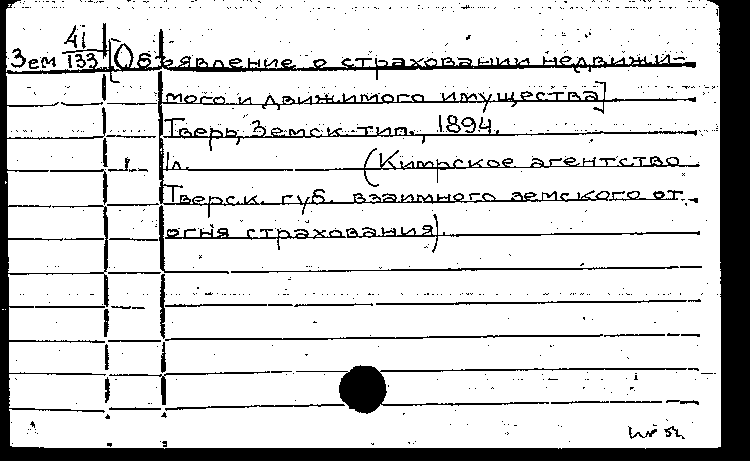 Зем 41/133 [Объявление о страховании недвижи-
мого и движимого имущества].
Тверь, Земск. тип., 1894.
1л. (Кимрское агентство
Тверск. губ. взаимного земского от
огня страхования).